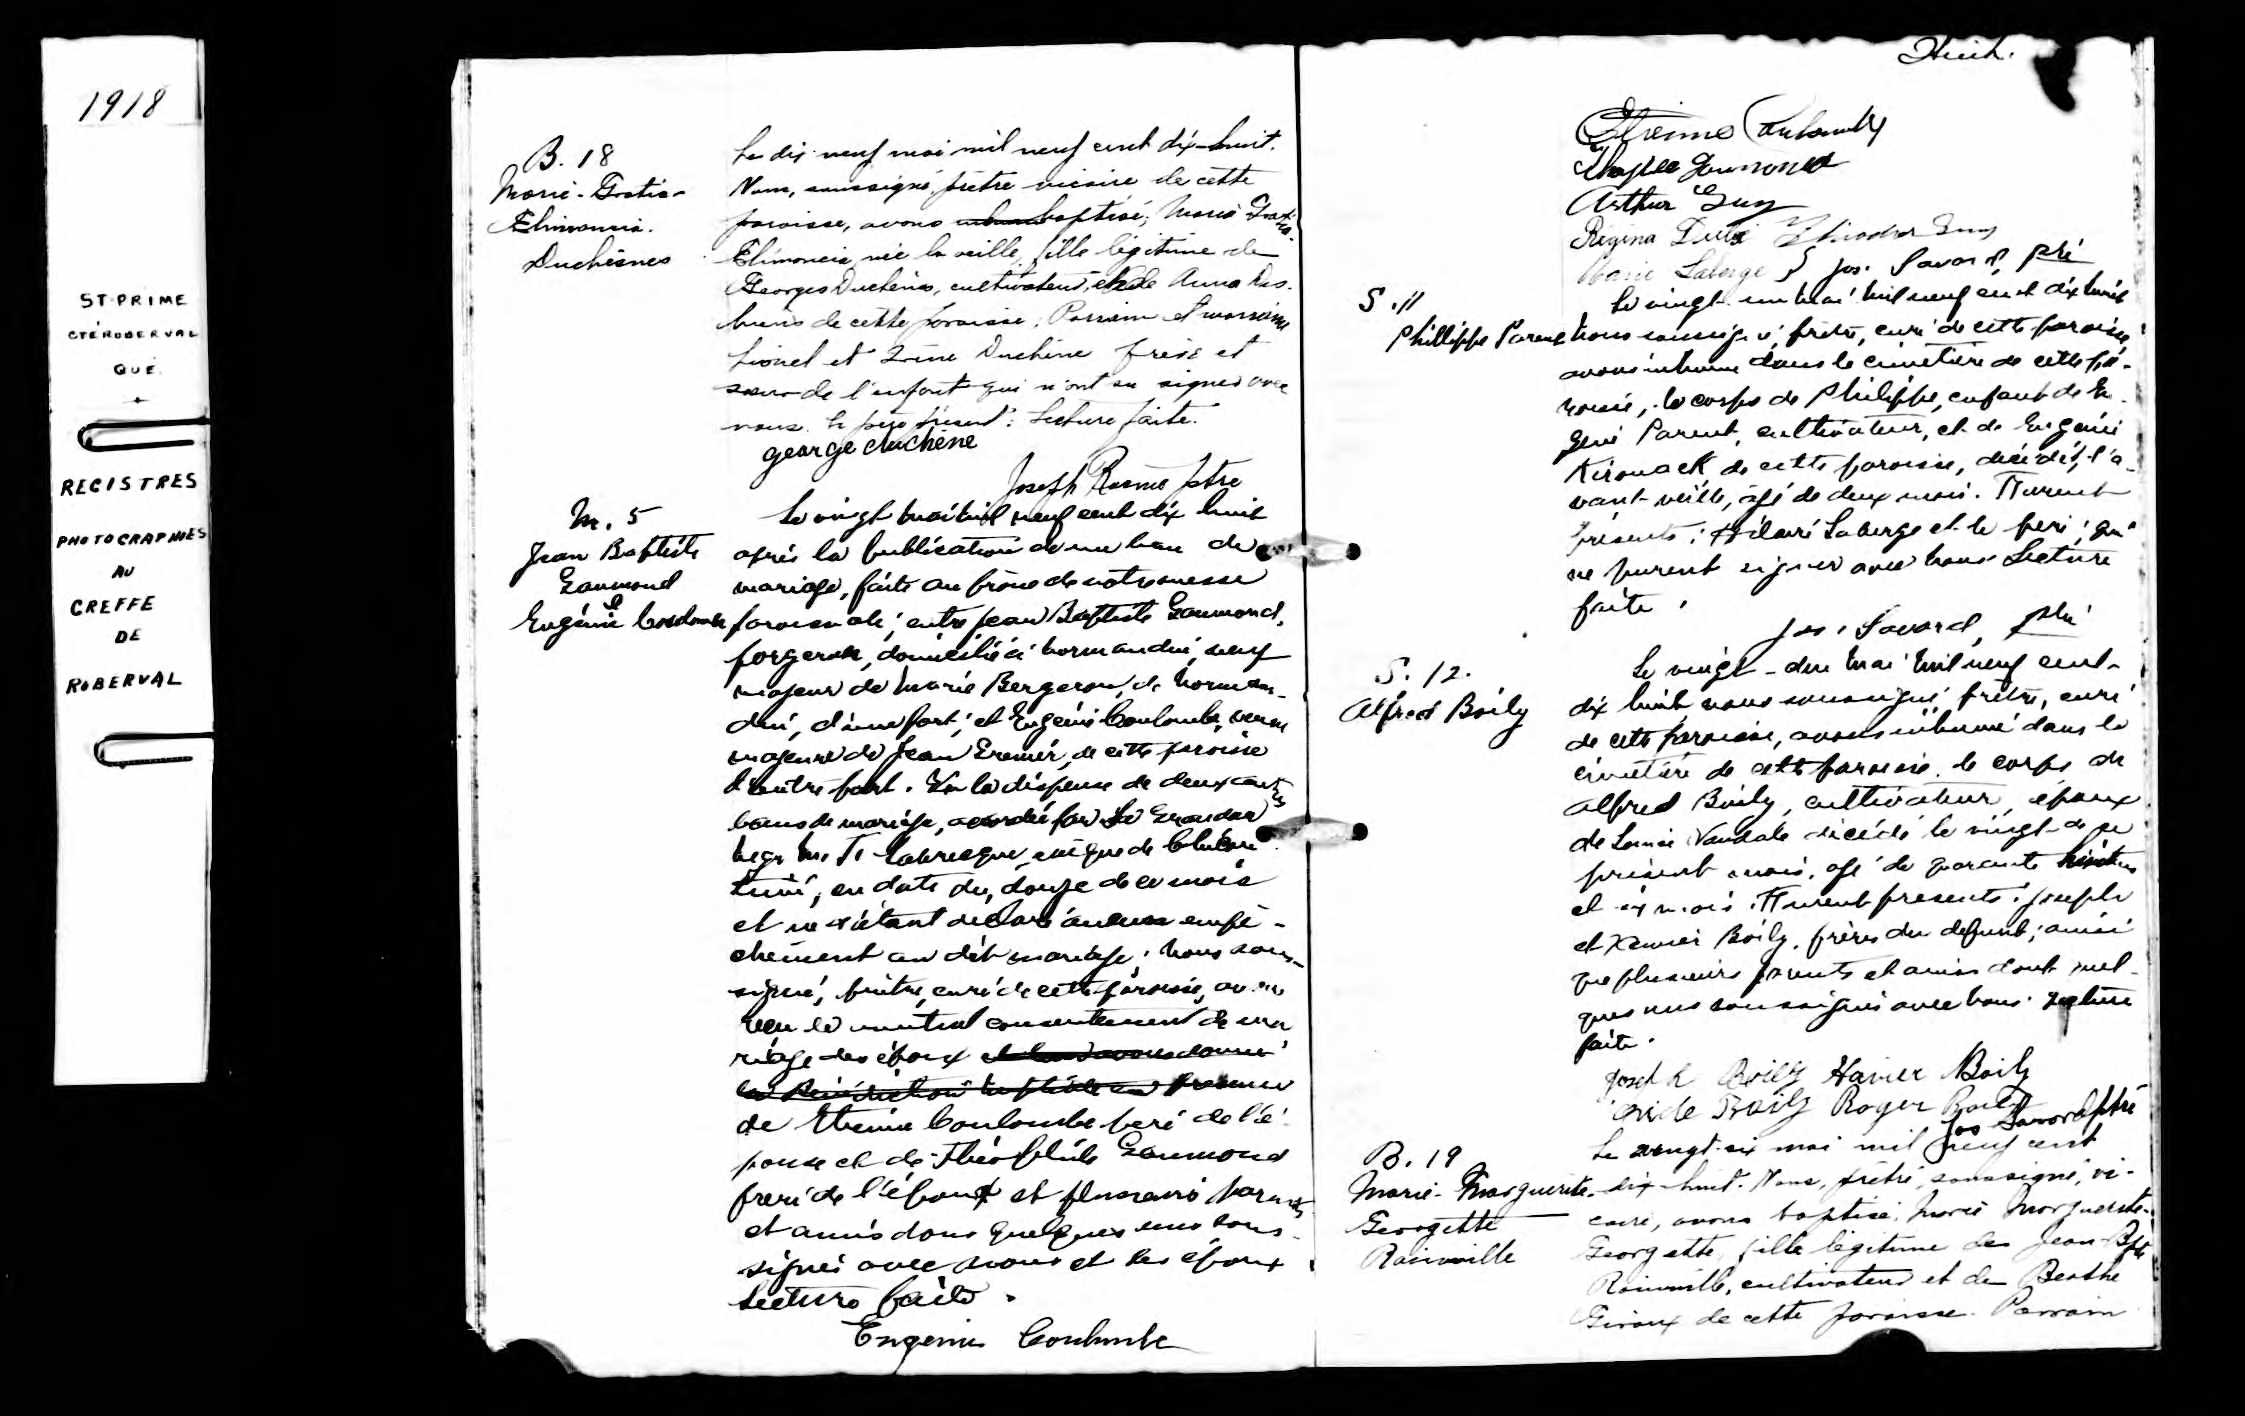 1918
ST-PRIME
CTÉ ROBERVAL
QUÉ.
REGISTRES
PHOTOGRAPHIES
AU
GREFFE
DE
ROBERVAL
B. 18
Marie-Gratia-
Duchesnes
Le dix-neuf mai mil neuf cent dix-huit.
Nous, soussigné, prêtre vicaire de cette
paroisse, avons baptisé, Marie Gratia-
née la veille, fille légitime de
Georges Duchêne, cultivateur, et de Anna Des-
biens de cette paroisse. Parrain et marraine
Lionel et Duchêne frère et
soeur de l'enfant qui n'ont su signer avec
nous. Le père présent. Lecture faite.
george duchène
Joseph ptre
M. 5
Jean Baptiste
Gaumond
&
Eugénie Coulombe
Le vingt mai mil neuf cent dix huit
après la publication de un ban de
mariage, faite au prône de notre messe
paroissiale, entre Jean Baptiste Gaumond,
forgeron, domicilié à Normandin, veuf
majeur de Marie Bergeron, de Norman-
din, d'une part; et Eugénie Coulombe, veuve
majeure de Jean Grenier, de cette paroisse
d'autre part. Vu la dispense de deux autres
bans de mariage, accordée par Sa Grandeur
Mgr M. T. Labrecque, évêque de Chicou-
timi, en date du douze de ce mois
et ne s'étant déclaré aucun empê-
chement au dit mariage; Nous sous-
signé, prêtre, curé de cette paroisse, avons
reçu le mutuel consentement de ma
riage des époux et leur avons donné
la bénédiction nuptiale en présence
de Etienne Coulombe père de l'é-
pouse et de Théophile Gaumond
frère de l'époux et plusieurs parents
et amis dont quelques uns sous-
signés avec nous et les époux
Lecture faite.
Eugenie Coulombe
Huit.
Etienne Coulombe
Gaumond
Arthur Guy
Régina
Marie Laberge Jos. Savard, ptre
S. 11
Phillippe Parent
Le vingt un mai mil neuf cent dix huit
nous soussigné, prêtre, curé de cette paroisse,
avons inhumé dans le cimetière de cette pa-
roisse, le corps de Philippe, enfant de Eu-
gène Parent, cultivateur, et de Eugénie
Kirouack de cette paroisse, décédé, l'a-
vant-veille, âgé de deux mois. Furent
présents: Hilaire Laberge et le père, qui
ne purent signer avec nous Lecture
faite.
Jos. Savard, ptre
S. 12.
Alfred Boily
Le vingt-deux mai mil neuf cent-
dix huit nous soussigné, prêtre, curé
de cette paroisse, avons inhumé dans le
cimetière de cette paroisse. le corps de
Alfred Boily, cultivateur, époux
de décédé le vingt de ce
présent mois, âgé de quarante
et six mois. Furent présents: Joseph
et Xavier Boily, frères du defunt; ainsi
que plusieurs parents et amis dont quel-
ques uns soussignés avec nous. Lecture
faite.
Joseph Boily Xavier Boily
Boily Roger Boily
Jos Savard ptre
B. 19
Marie-Marguerite-
Georgette
Rainville
Le vingt-six mai mil neuf cent
dix-huit. Nous, prêtre, soussigné, vi-
caire, avons baptisé, Marie Marguerite-
Georgette, fille légitime de Jean-Bpte
Rainville, cultivateur et de Berthe
Giroux de cette paroisse. Parrain